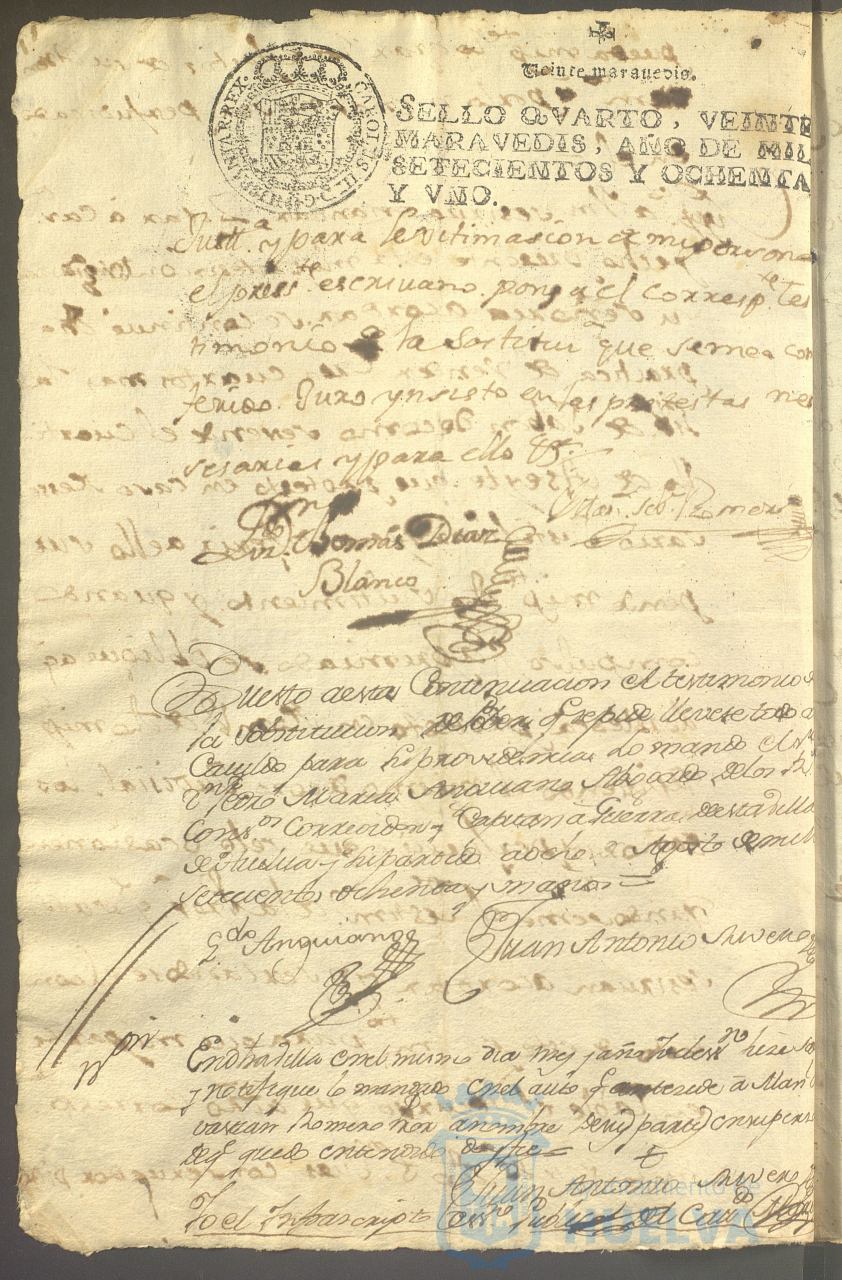 Veinte maravedis.
SELLO QVARTO, VEINTE
MARAVEDIS, AÑO DE MIL
SETECIENTOS Y OCHENTA
Y VNO.
CAROLUS III. D. G. HISPANIAR. REX.
Justt.ª y para lexitimasion de mi persona
el press.te escrivano pong.ª el corresp.te tes
timonio de la Sostitu.n que seme a con
ferido. Juro ynsisto en las protestas nes
sesarias y para ello &.ª
Man. Seb.n Romero
Thomás Diaz
Blanco
Puesto a esta Continuacion el testimonio de
la sobstitucion de Poder q.e se pide llevese todo a
Cavildo para su providencia lo mando el S.r
D.n Pedro Maria Anguiano Abogado de los R.s
Cons.os Correxidor y Capitan à Guerra de esta Villa
de Huelva y su partido a ocho de Agosto de mill
setecientos ochenta y un años =
L.do Anguiano
Juan Antonio
En dha Villa en el mismo dia mes y año Yo el ess.no hise saver
y notifique lo mandado en el auto q antecede à Man.
vastian Romero Pror a nombre de su parte en su persona
de q.e quedo entendido doy fee =
Juan Antonio
Yo el Infrascripto Ess.no Publico del Cav.do
Ayuntamiento de
HUELVA